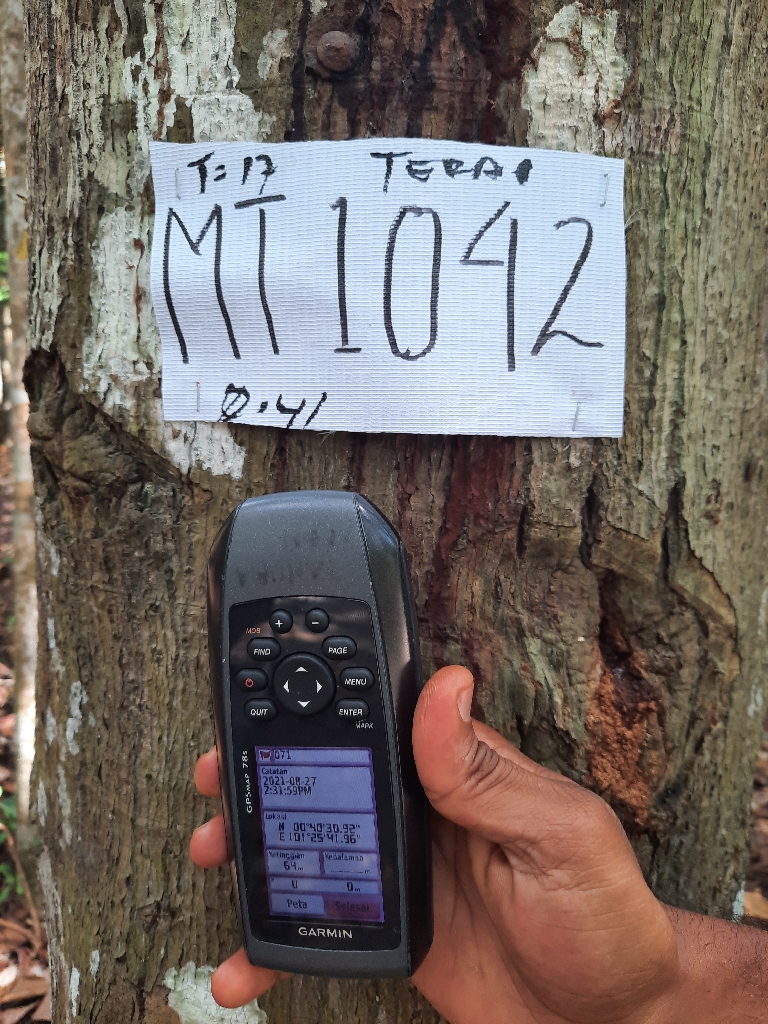 T=17 TERAP
MT 1042
0.41
+ -
MOB
FIND PAGE
MENU
QUIT ENTER
MARK
GPSMAP 78s
071
Catatan
2021-08-27
2:31:59PM
Lokasi
N 00°40'30.92"
E 101°25'41.96"
Ketinggian Kedalaman
64m
U 0m
Peta Selesai
GARMIN